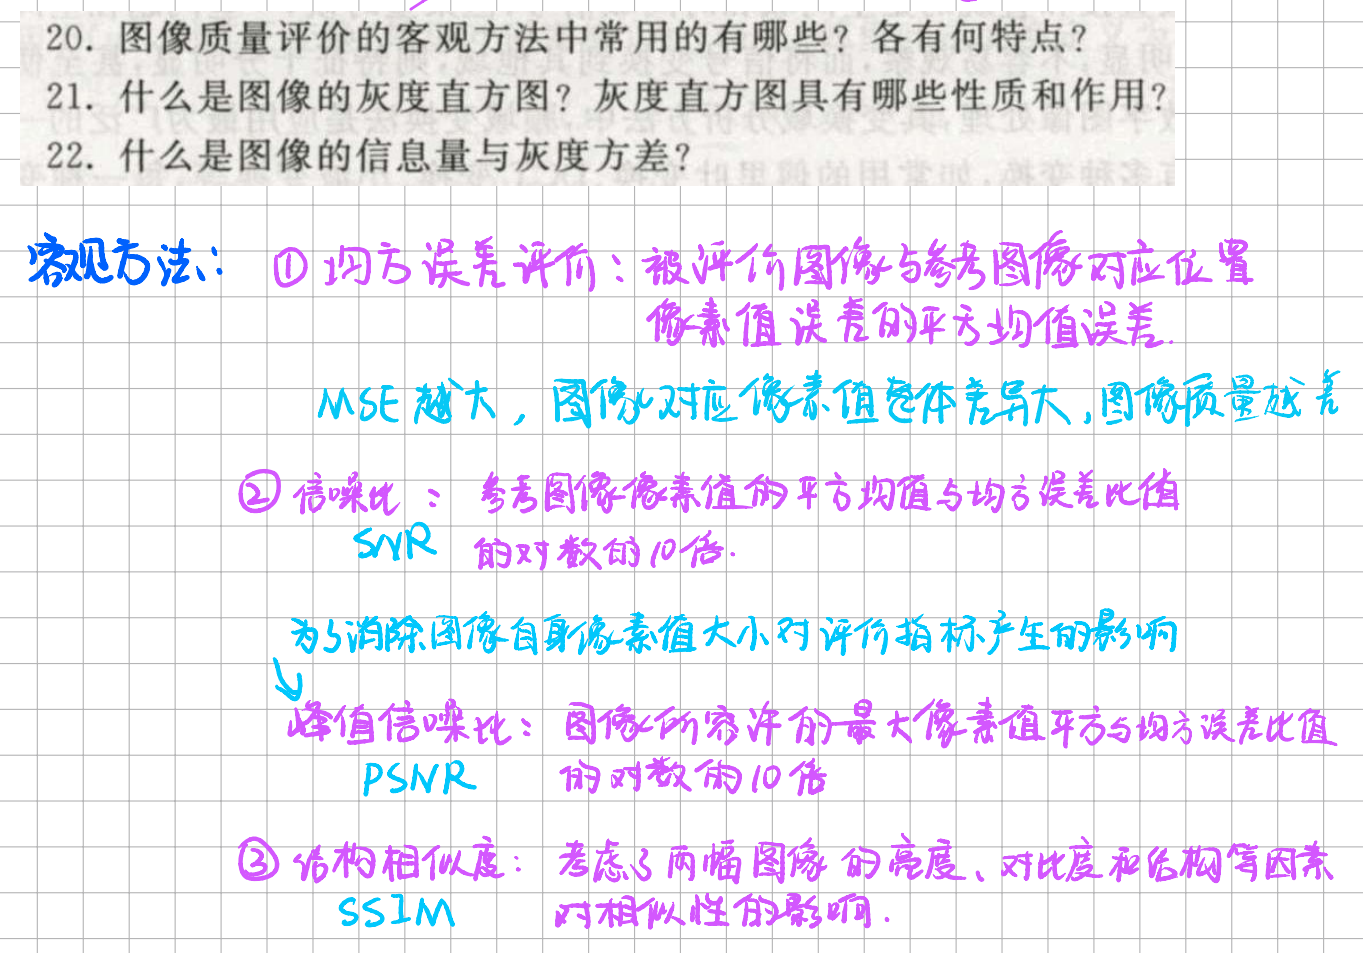 20. 图像质量评价的客观方法中常用的有哪些? 各有何特点?
21. 什么是图像的灰度直方图? 灰度直方图具有哪些性质和作用?
22. 什么是图像的信息量与灰度方差?
客观方法: ① 均方误差评价: 被评价图像与参考图像对应位置
像素值误差的平方均值误差.
MSE越大, 图像对应像素值整体差异大, 图像质量越差
② 信噪比: 参考图像像素值的平方均值与均方误差比值
SNR 的对数的10倍.
为了消除图像自身像素值大小对评价指标产生的影响
峰值信噪比: 图像所容许的最大像素值平方与均方误差比值
PSNR 的对数的10倍
③ 结构相似度: 考虑了两幅图像的亮度、对比度和结构等因素
SSIM 对相似性的影响.